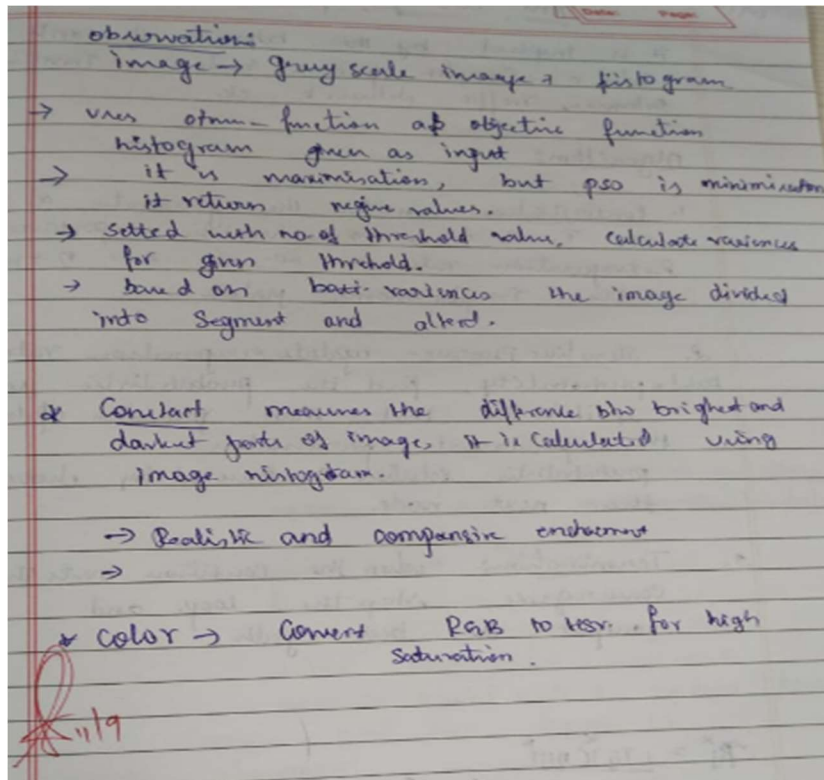 Date: Page:
observation:
image → grey scale image + histogram
→ uses otsu-function as objective function
histogram given as input
→ it is maximisation, but pso is minimisation
it returns negive values.
→ setted with no.of threshold value, calculate variences
for given threhold.
→ based on variences the image divided
into Segment and alterd.
* Constart measures the difference btw brighest and
darkest parts of image, it is calculated using
image histogram.
→ Realistic and
→
* Color → Convert RGB to HSV. for high
saturation.
11/9